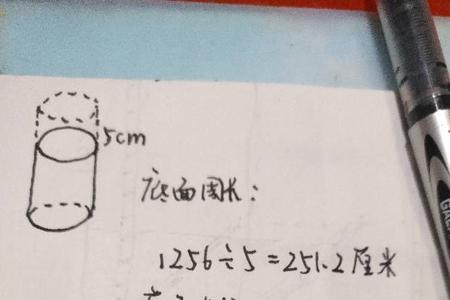 5cm
底面周长：
1256÷5=251.2厘米